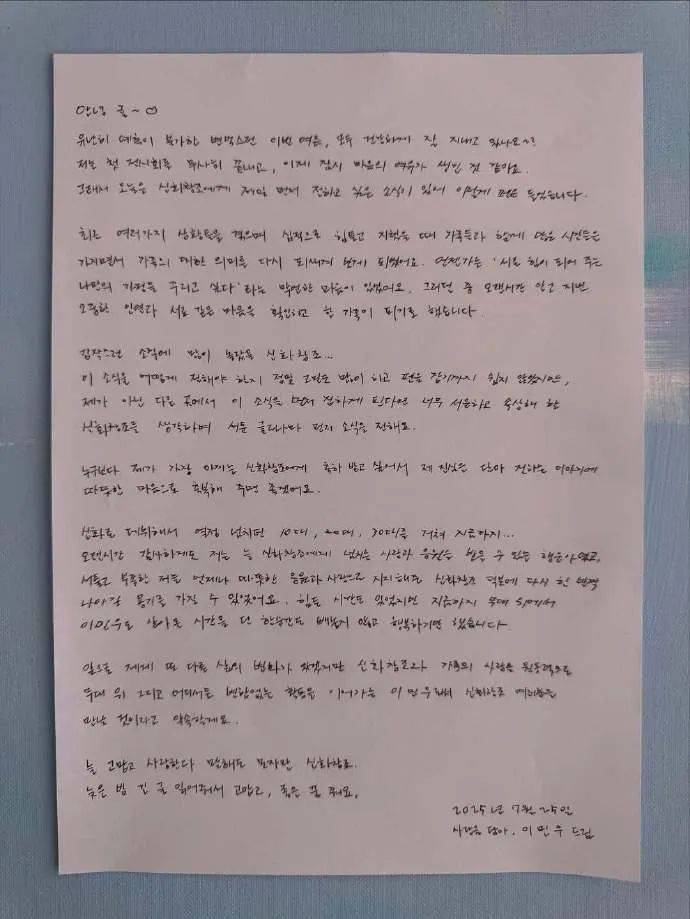 안녕 글~♡
유난히 더위 변덕스런 이번 여름, 모두 건강하게 잘 지내고 있나요~?
저는 첫 전시회를 무사히 끝내고, 이제 잠시 마음의 여유가 생긴 것 같아요.
그래서 오늘은 신화창조에게 제일 먼저 전하고 싶은 소식이 있어 이렇게 펜을 들었습니다.
최근 여러가지 상황들을 겪으며 심적으로 힘들고 지쳤을 때 가족들과 함께 많은 시간들을
가지면서 가족의 대한 의미를 다시 되새겨 보게 되었어요. 언젠가는 '서로 힘이 되어 주는
나만의 가정을 꾸리고 싶다'라는 막연한 마음이 있었어요. 그러던 중 오랜시간 알고 지낸
소중한 인연과 서로 같은 마음을 확인하고 한 가족이 되기로 했습니다.
갑작스런 소식에 많이 놀랐을 신화창조...
이 소식을 어떻게 전해야 하지 정말 고민도 많이 하고 펜을 잡기까지 쉽지 않았지만,
제가 아닌 다른 곳에서 이 소식을 먼저 접하게 된다면 너무 서운하고 속상해 할
신화창조를 생각하며 서툰 글이나마 먼저 소식을 전해요.
누구보다 제가 가장 아끼는 신화창조에게 축하 받고 싶어서 제 진심을 담아 전하는 이야기에
따뜻한 마음으로 축복해 주면 좋겠어요.
신화로 데뷔해서 열정 넘치던 10대, 20대, 30대를 거쳐 지금까지...
오랜시간 감사하게도 저는 늘 신화창조에게 넘치는 사랑과 응원을 받을 수 있는 행운아였고,
서툴고 부족한 저를 언제나 따뜻한 응원과 사랑으로 지지해준 신화창조 덕분에 다시 한 번
나아갈 용기를 가질 수 있었어요. 힘든 시간도 있었지만 지금까지 무대 위에서
이민우로 살아온 시간을 단 한순간도 빼놓지 않고 행복하기만 했습니다.
앞으로 제게 또 다른 삶의 변화가 있겠지만 신화창조와 가족의 사랑을 원동력으로
무대 위 그리고 어디서든 변함없는 활동을 이어가는 이민우로 신화창조 여러분을
만날 것이라고 약속할게요.
늘 고맙고 사랑한다 말해도 모자란 신화창조.
늦은 밤 긴 글 읽어줘서 고맙고, 좋은 꿈 꿔요.
2025년 7월 25일
사랑을 담아. 이민우 드림